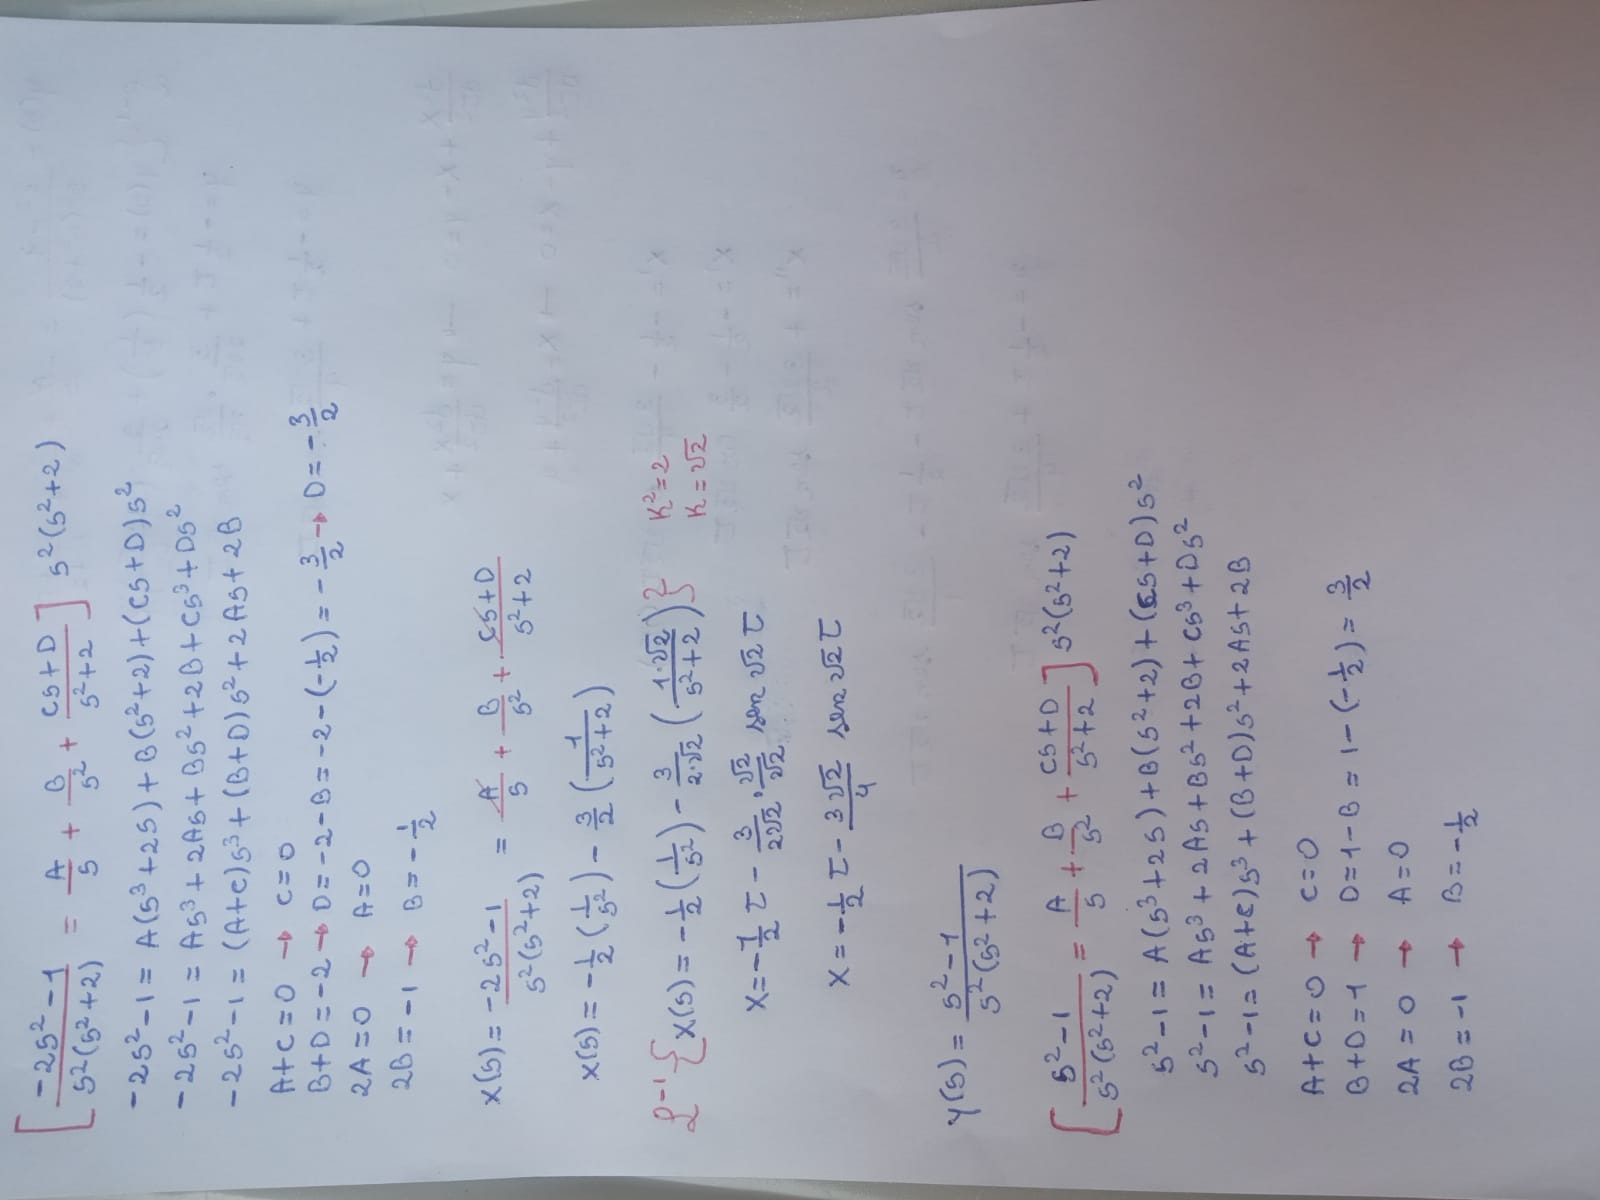 [ -2s²-1 / s²(s²+2) = A/s + B/s² + Cs+D / s²+2 ] s²(s²+2)
-2s²-1 = A(s³+2s)+B(s²+2)+(Cs+D)s²
-2s²-1 = As³+2As+Bs²+2B+Cs³+Ds²
-2s²-1 = (A+C)s³+(B+D)s²+2As+2B
A+C=0 → C=0
B+D=-2 → D=-2-B=-2-(-1/2)=-3/2 → D=-3/2
2A=0 → A=0
2B=-1 → B=-1/2
X(s)= -2s²-1 / s²(s²+2) = A/s + B/s² + Cs+D / s²+2
X(s)=-1/2(1/s²)-3/2(1/s²+2)
ℒ⁻¹{X(s)=-1/2(1/s²)-3/2·√2(1·√2/s²+2)} K²=2
K=√2
X=-1/2 t-3/2√2·√2/√2 sen √2 t
X=-1/2 t-3√2/4 sen √2 t
Y(s)= s²-1 / s²(s²+2)
[ s²-1 / s²(s²+2) = A/s + B/s² + Cs+D / s²+2 ] s²(s²+2)
s²-1= A(s³+2s)+B(s²+2)+(Cs+D)s²
s²-1= As³+2As+Bs²+2B+Cs³+Ds²
s²-1=(A+C)s³+(B+D)s²+2As+2B
A+C=0 → C=0
B+D=1 → D=1-B=1-(-1/2)=3/2
2A=0 → A=0
2B=-1 → B=-1/2